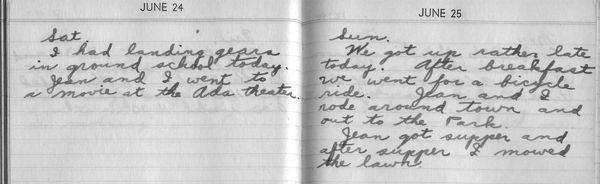 JUNE 24
Sat.
I had landing gears
in ground school today.
Jean and I went to
a movie at the Ada theater.
JUNE 25
Sun.
We got up rather late
today. After breakfast
we went for a bicycle
ride. Jean and I
rode around town and
out to the Park.
Jean got supper and
after supper I mowed
the lawn.